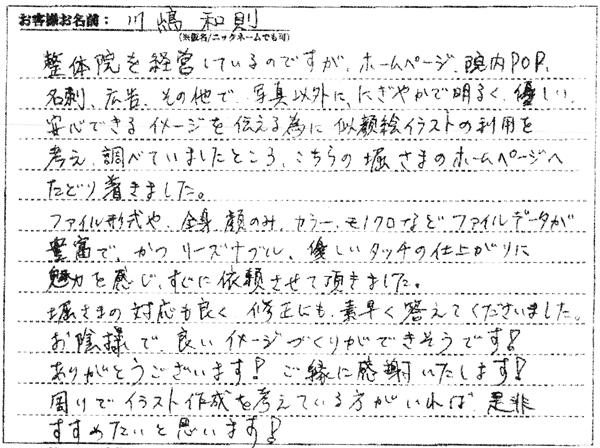 お客様お名前： 川嶋 和則
（※仮名/ニックネームでも可）
整体院を経営しているのですが、ホームページ、院内POP、
名刺、広告、その他で、写真以外に、にぎやかで明るく、優しい、
安心できるイメージを伝える為に似顔絵イラストの利用を
考え、調べていましたところ、こちらの堀さまのホームページへ
たどり着きました。
ファイル形式や、全身、顔のみ、カラー、モノクロなどファイルデータが
豊富で、かつリーズナブル、優しいタッチの仕上がりに
魅力を感じ、すぐに依頼させて頂きました。
堀さまの対応も良く、修正にも、素早く答えてくださいました。
お陰様で、良いイメージづくりができそうです!
ありがとうございます! ご縁に感謝いたします!
周りでイラスト作成を考えている方がいれば、是非
すすめたいと思います!